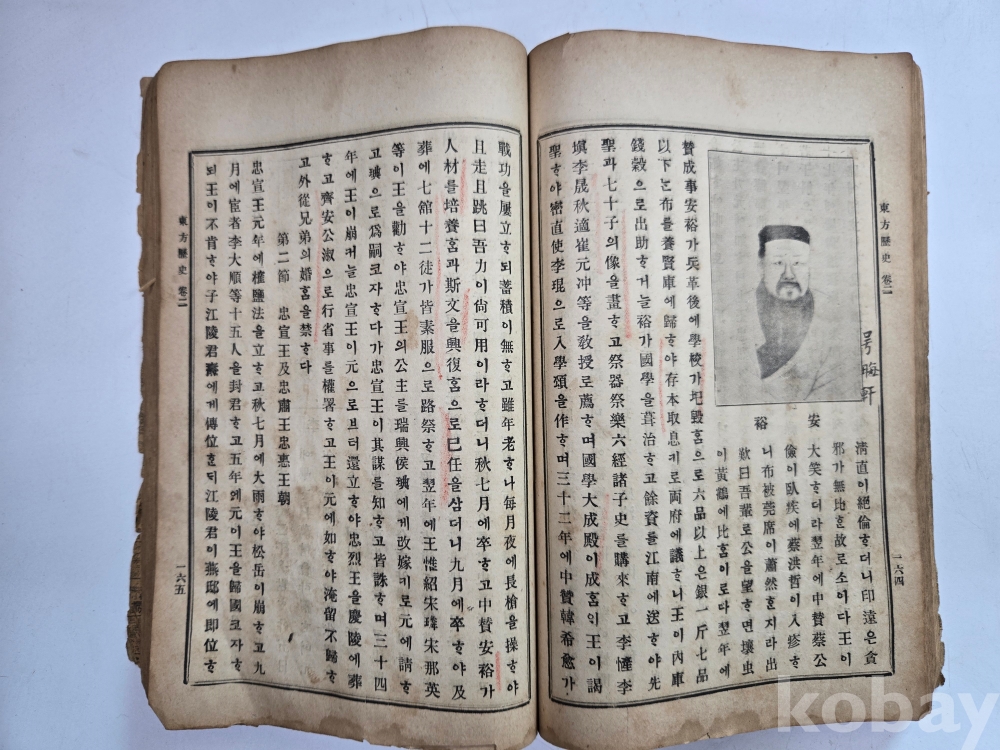 東方歷史 卷二
一六四
号晦軒
安裕
淸直이絕倫ᄒᆞ더니印遠은貪
邪가無比ᄒᆞᆫ故로소이다王이
大笑ᄒᆞ더라翌年에中贊蔡公
儉이臥疾에蔡洪哲이入疹ᄒᆞ
니布被莞席이蕭然ᄒᆞᆫ지라出
歎曰吾輩로公을望ᄒᆞ면壤虫
이黃鶴에比홈이로다翌年에
贊成事安裕가兵革後에學校가圮毀홈으로六品以上은銀一斤七品
以下ᄂᆞᆫ布를養賢庫에歸ᄒᆞ야存本取息키로両府에議ᄒᆞ니王이內庫
錢穀으로出助ᄒᆞ거ᄂᆞᆯ裕가國學을葺治ᄒᆞ고餘資를江南에送ᄒᆞ야先
聖과七十子의像을畫ᄒᆞ고祭器祭樂六經諸子史를購來ᄒᆞ고李㦃李
塡李晟秋適崔元冲等을敎授로薦ᄒᆞ며國學大成殿이成홈ᄋᆡ王이謁
聖ᄒᆞ야密直使李琨으로入學頌을作ᄒᆞ며三十二年에中贊韓希愈가
戰功을屢立ᄒᆞ되蓄積이無ᄒᆞ고雖年老ᄒᆞ나每月夜에長槍을操ᄒᆞ야
且走且跳曰吾力이尙可用이라ᄒᆞ더니秋七月에卒ᄒᆞ고中贊安裕가
人材를培養홈과斯文을興復홈으로已任을삼더니九月에卒ᄒᆞ야及
葬에七舘十二徒가皆素服으로路祭ᄒᆞ고翌年에王惟紹宋璘宋那英
等이王을勸ᄒᆞ야忠宣王의公主를瑞興侯琠에게改嫁키로元에請ᄒᆞ
고琠으로爲嗣코자ᄒᆞ다가忠宣王이其謀를知ᄒᆞ고皆誅ᄒᆞ며三十四
年에王이崩커늘忠宣王이元으로브터還立ᄒᆞ야忠烈王을慶陵에葬
ᄒᆞ고齊安公淑으로行省事를權署ᄒᆞ고王이元에如ᄒᆞ야淹留不歸ᄒᆞ
고外從兄弟의婚홈을禁ᄒᆞ다
第二節 忠宣王及忠肅王忠惠王朝
忠宣王元年에榷鹽法을立ᄒᆞ고秋七月에大雨ᄒᆞ야松岳이崩ᄒᆞ고九
月에宦者李大順等十五人을封君ᄒᆞ고五年에元이王을歸國코자ᄒᆞ
되王이不肯ᄒᆞ야子江陵君燾에게傳位ᄒᆞᆫᄃᆡ江陵君이燕邸에即位ᄒᆞ
東方歷史 卷二
一六五
kobay